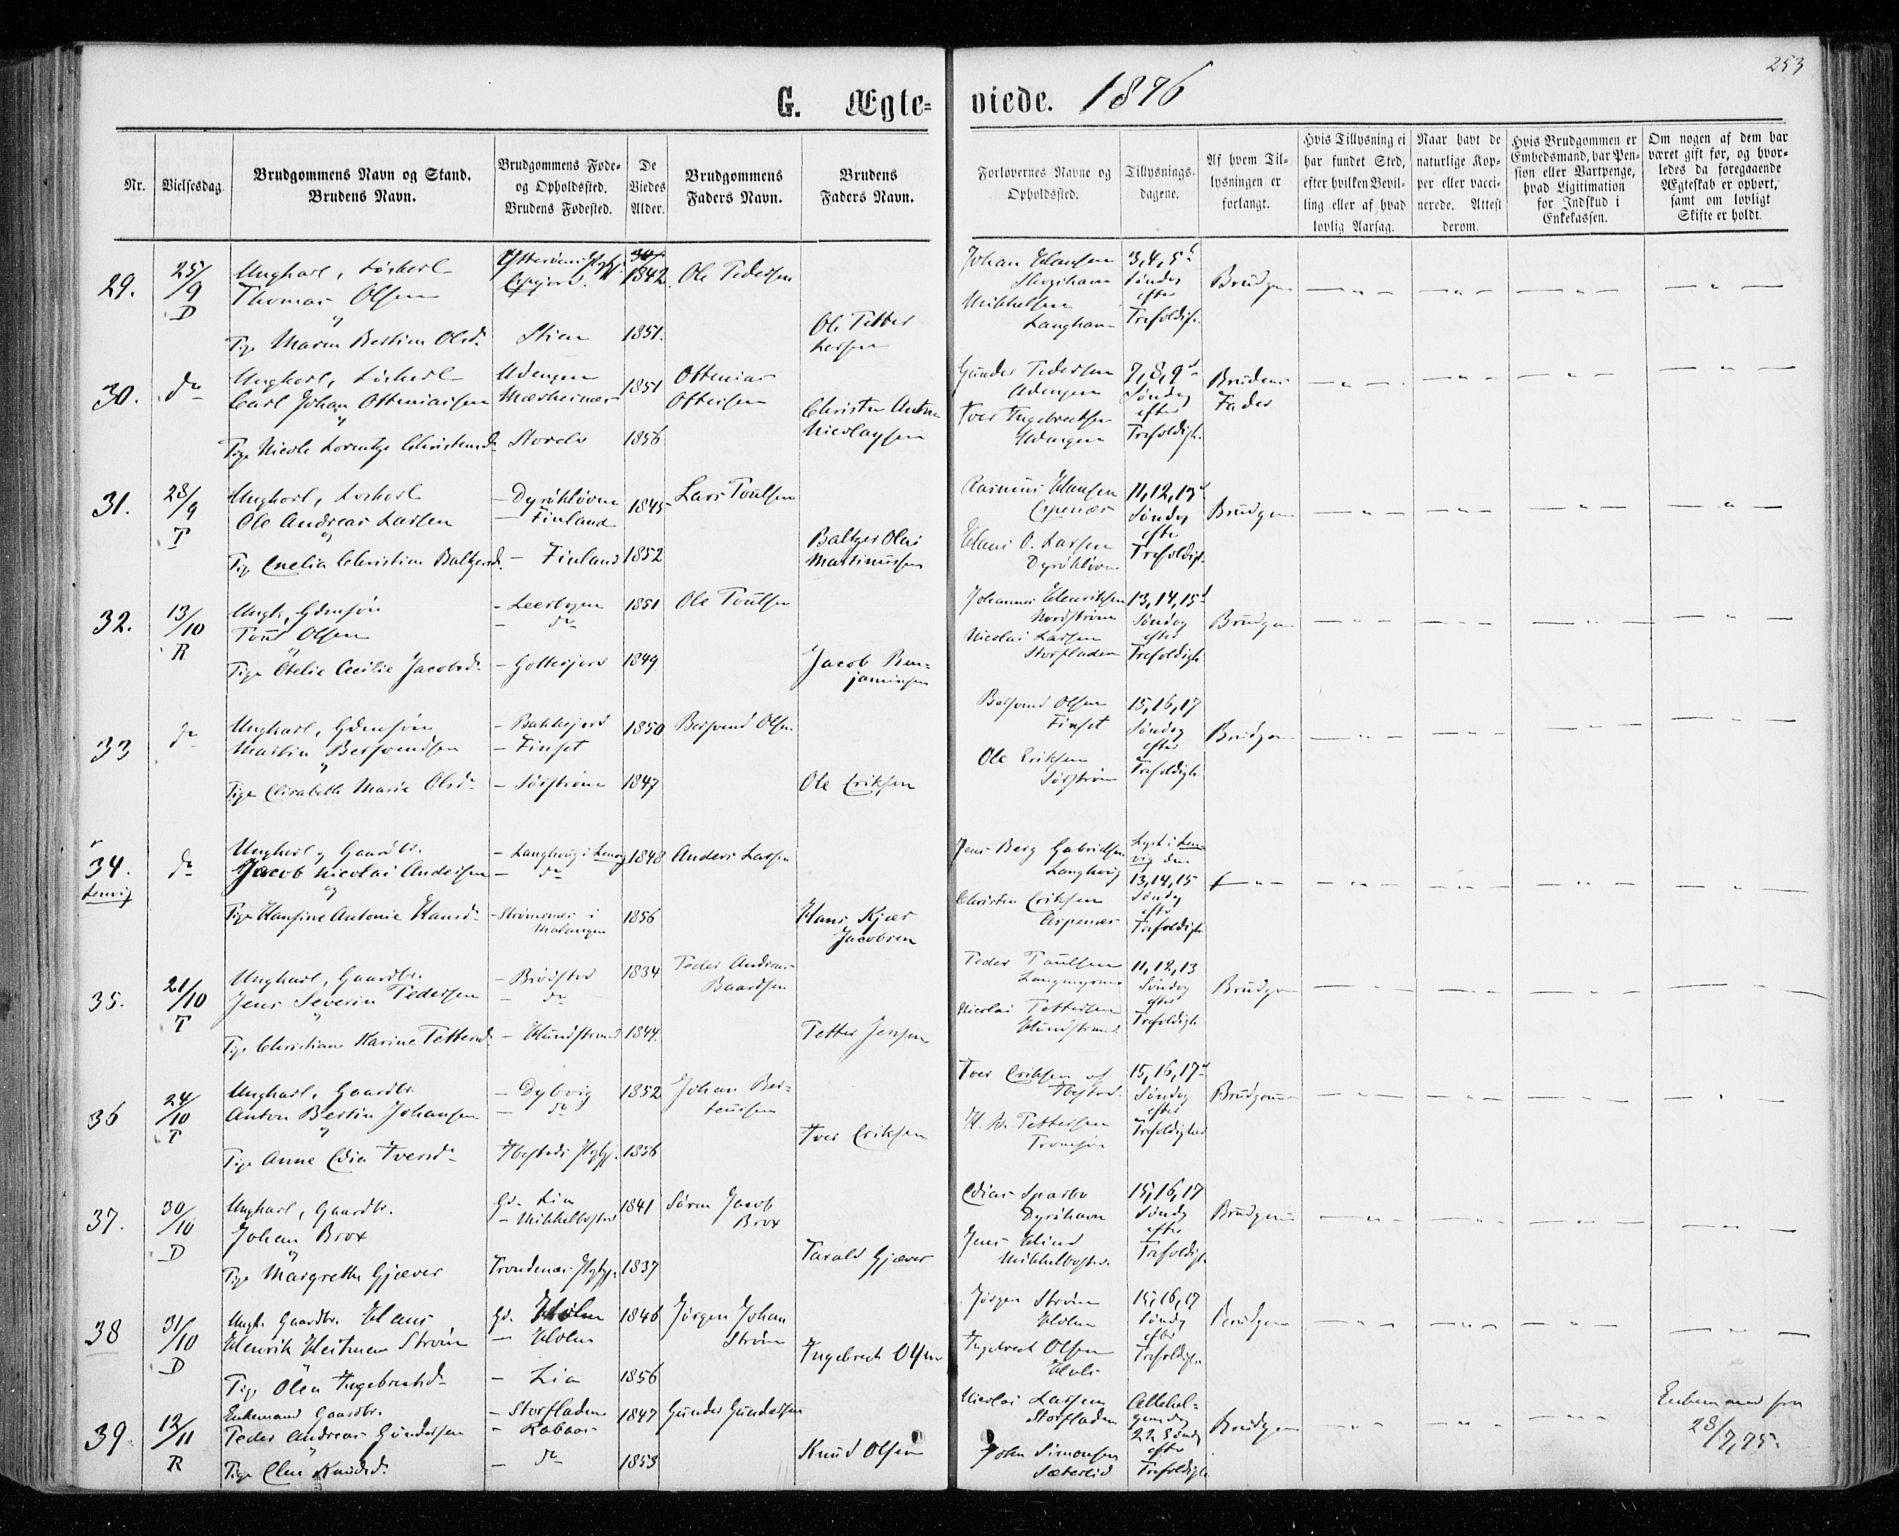 253
G. Ægte= viede. 1876
Nr.
Vielsesdag.
Brudgommens Navn og Stand.
Brudens Navn.
Brudgommens Føde-
og Opholdssted.
Brudens Fødested.
De
Viedes
Alder.
Brudgommens
Faders Navn.
Brudens
Faders Navn.
Forlovernes Navne og
Opholdssted.
Tillysnings-
dagene.
Af hvem Til-
lysningen er
forlangt.
Hvis Tillysning ei
har fundet Sted,
efter hvilken Bevil-
ling eller af hvad
lovlig Aarsag.
Naar havt de
naturlige Kop-
per eller vacci-
nerede. Attest
derom.
Hvis Brudgommen er
Embedsmand, har Pen-
sion eller Vartpenge,
hvad Ligitimation
for Indskud i
Enkekassen.
Om nogen af dem har
været gift før, og hvor-
ledes da foregaaende
Ægteskab er ophørt,
samt om lovligt
Skifte er holdt.
29. 25/9 D
Ungkarl, Løskarl
Thomas Olsen
og
Pige Maren Bertine Olsd.
Stien
1842
1851.
Ole Pedersen
Ole Petter
Larsen
Johan Hansen
Mikkelsen
Langhavn
3, 4, 5
Søndag
efter
Trefoldigh.
Brudgom
30. do
Ungkarl, Løskarl
Carl Johan Otteniaisen
Pige Nicole Lorentze Christensd.
Storelv
1851
1856
Christen Anton
Nicolaysen
Gunder Pedersen
Iver Ingebrectsen
7, 8, 9
Søndag
efter
Trefoldigh.
Brudens
Fader
31. 28/9 T
Ungkarl, Løskarl
Ole Andreas Larsen
og
Pige Christine Baltzersd.
- Finland
- Finland
1845
1852
Lars Poulsen
Baltzer Olai
Martinussen
Rasmus Hansen
Hans O. Larsen
11, 12, 13
Søndag
efter
Trefoldigh.
Brudgom
32. 13/10 R
Ungk., Gdmsøn
Poul Olsen
Pige Otelie Cecilie Jacobsd.
- do
1851
1849
Ole Poulsen
Jacob Ben-
jaminsen
Johannes Henriksen
Nordstrøm
Nicolai Larsen
Storfladen
13, 14, 15
Søndag
efter
Trefoldigh.
Brudgom
33 do
Ungkarl, Gdmsøn
Martin Bersvendsen
Pige Elisabeth Marie Olsd.
- Bakkejord
- Finset
- Sørstrøm
1850
1847
Bersvend Olsen
Ole Eriksen
Bersvend Olsen
Finset
Ole Eriksen
Sørstrøm
15, 16, 17
Søndag
efter
Trefoldigh.
Brudgom
34. do
Lenvig
Ungkarl, Gaardbr.
Jacob Nicolai Andersen
og
Pige Hansine Antonie Hansd.
- Langhvig i Lenvig
- do
- Strømsnæs i
Malangen
1848
1856
Anders Larsen
Hans Kjær
Jacobsen
Jens Berg Gabrielsen
Langhvig
Christen Eriksen
Aspenæs
Lyst i Len-
vig den
13, 14, 15
Søndag
efter
Trefoldigh.
35. 21/10 T
Ungkarl, Gaardbr.
Jens Severin Pedersen
Pige Christiane Karine Pettersd.
- Brødstad
- do
1834
1844.
Peder Andreas
Baardsen
Petter Jensen
Peder Paulsen
Nicolai Pettersen
11, 12, 13
Søndag
efter
Trefoldigh.
Brudgom
36 24/10 T
Ungkarl, Gaardbr.
Anton Bertin Johansen
Pige Anne Edia Iversd.
- Dybvig
- do
Ibestads Præstgj.
1852
1856
Johan Ber-
teussen
Iver Eriksen
Iver Eriksen af
Ibestad.
Pettersen
Tromsøe
15, 16, 17
Søndag
efter
Trefoldighed
Brudgom
37. 30/10 D
Ungkarl, Gaardbr.
Johan Brox
og
Pige Margrethe Gjæver
Gd. Lia
- Mikkelbostad
Trondenæs Præstgj.
1841
1837
Søren Jacob
Brox
Tarald Gjæver
Edias Sparbo
Dyrøhavn
Jens Hind
Mikkelbostad.
15, 16, 17
Søndg
efter
Trefoldigh.
Brudgom
38 31/10 D
Ungk. Gaardbr. Hans
Henrik Heitman Strøm
Pige Olea Ingebrectsd.
Gd. Holm
- Holm
- Lia
1846
1856
Jørgen Johan
Strøm
Ingebrect Olsen
Jørgen Strøm
Holm
Ingebrect Olsen
15, 16, 17
Søndg
efter
Trefoldigh.
Brudgom
39 12/11 R
Enkemand Gaardbr.
Peder Andreas Gundersen
Pige Knudsd.
- Storfladen
- do
1847
1853
Gunder Gundersen
Knud Olsen
Nicolai Larsen
Storfladen
John Simonsen
Sæterlid
Allehel-
gensdag
22 Søndg
efter
Trefoldigh.
Brudgom
Enkemand fra
28/7, 75.